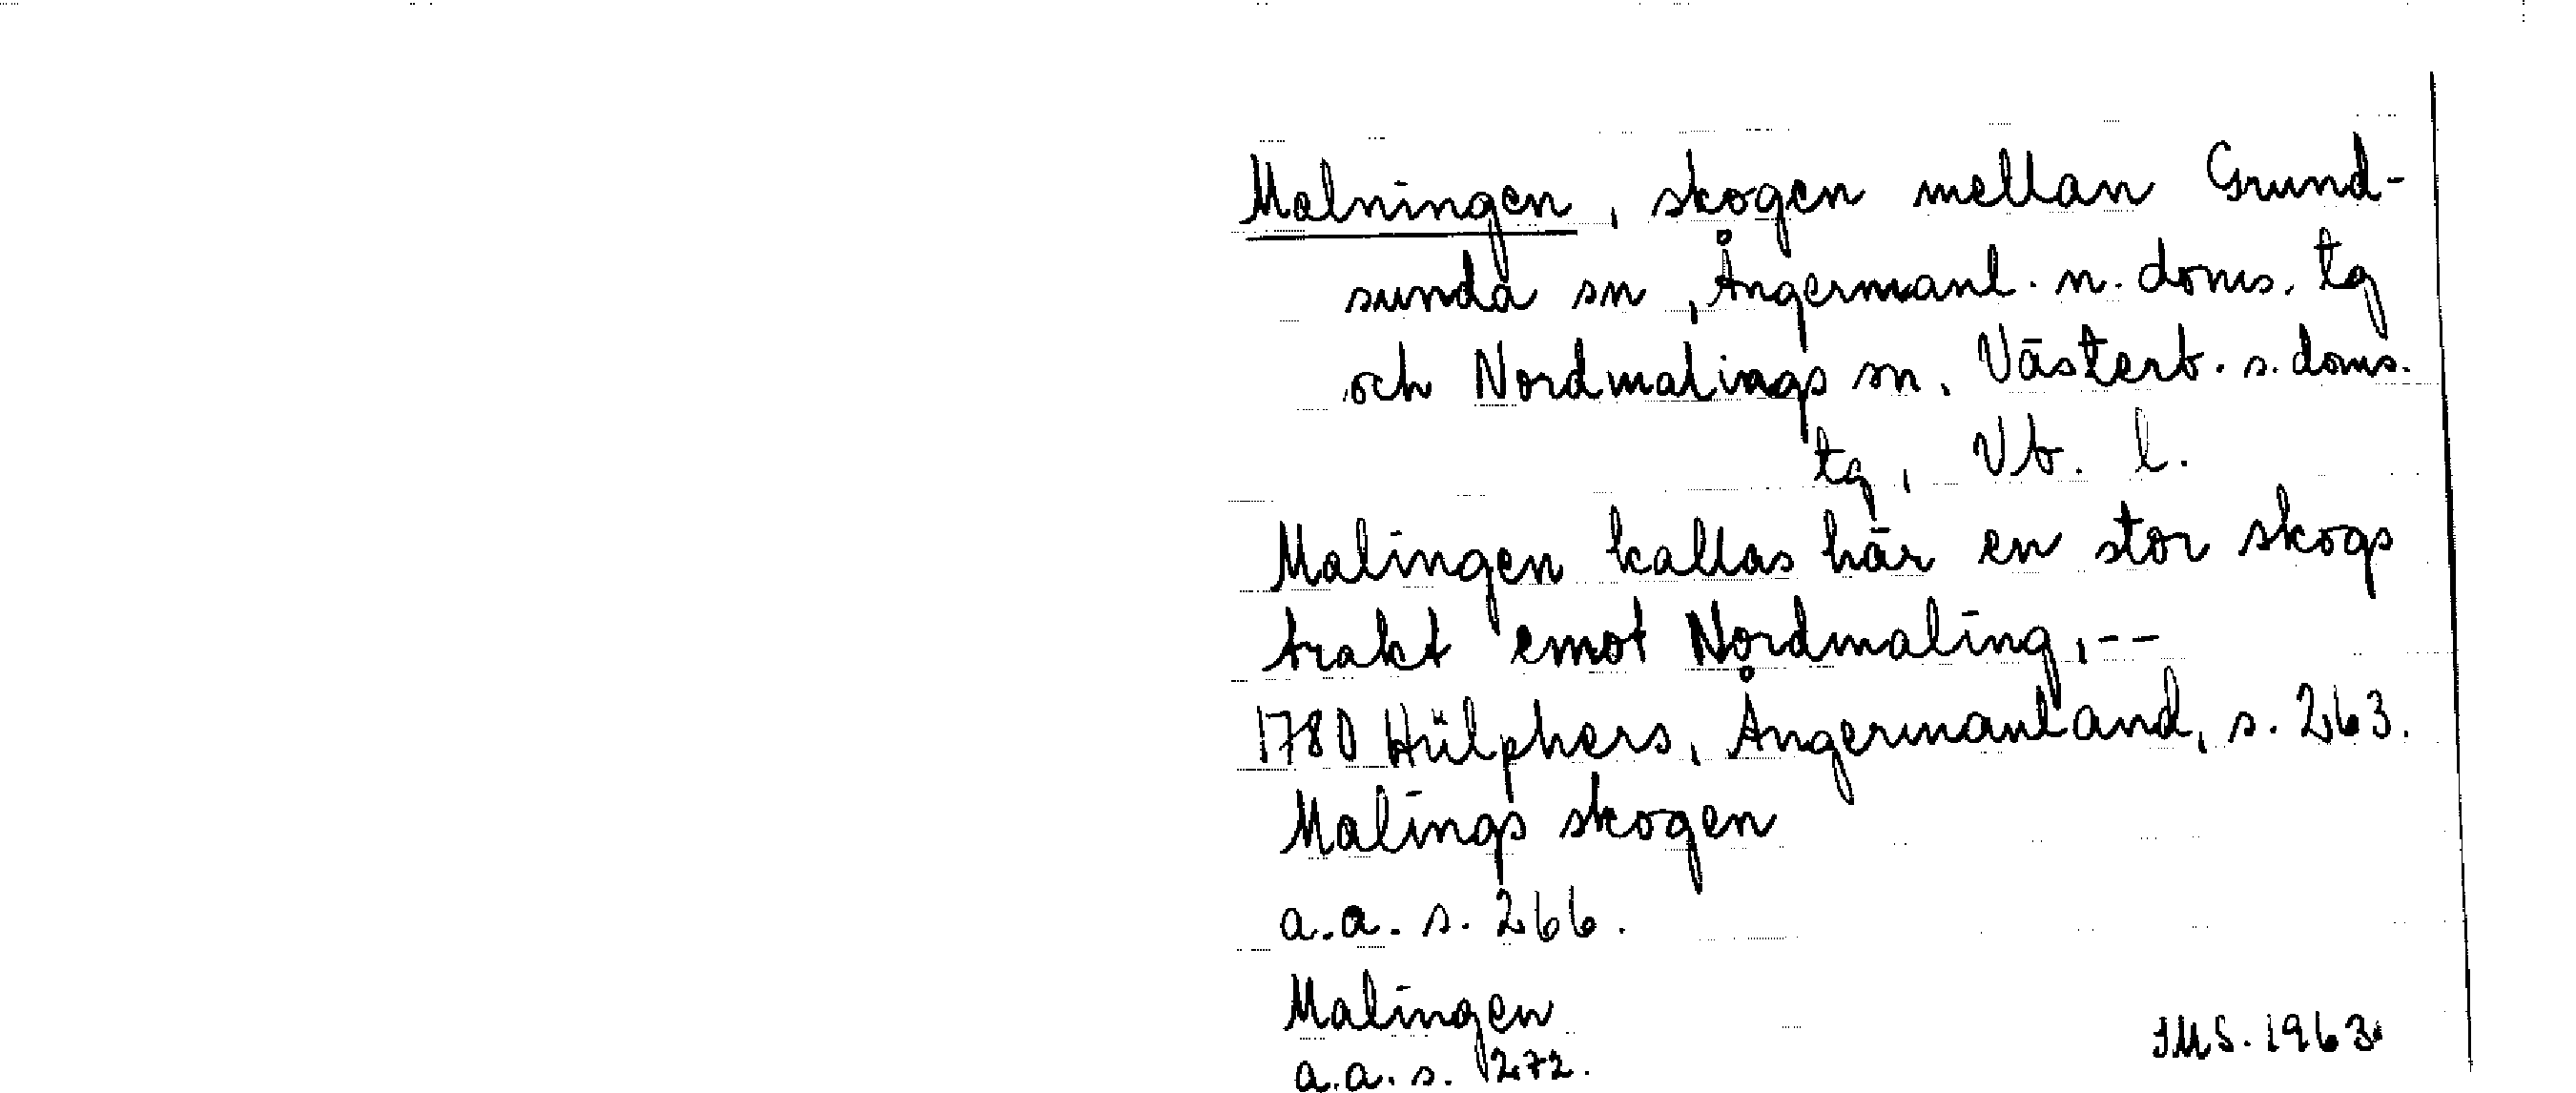 Malningen, skogen mellan Grund-
sunda sn, Ångermanl. n. doms. tg
och Nordmalings sn, Västerb. s. doms.
tg, Vb. l.
Malingen kallas här en stor skogs
trakt emot Nordmaling,--
1780 Hülphers, Ångermanland, s. 263.
Malings skogen
a.a. s. 266.
Malingen
a.a. s. 272.
IMS. 1963.